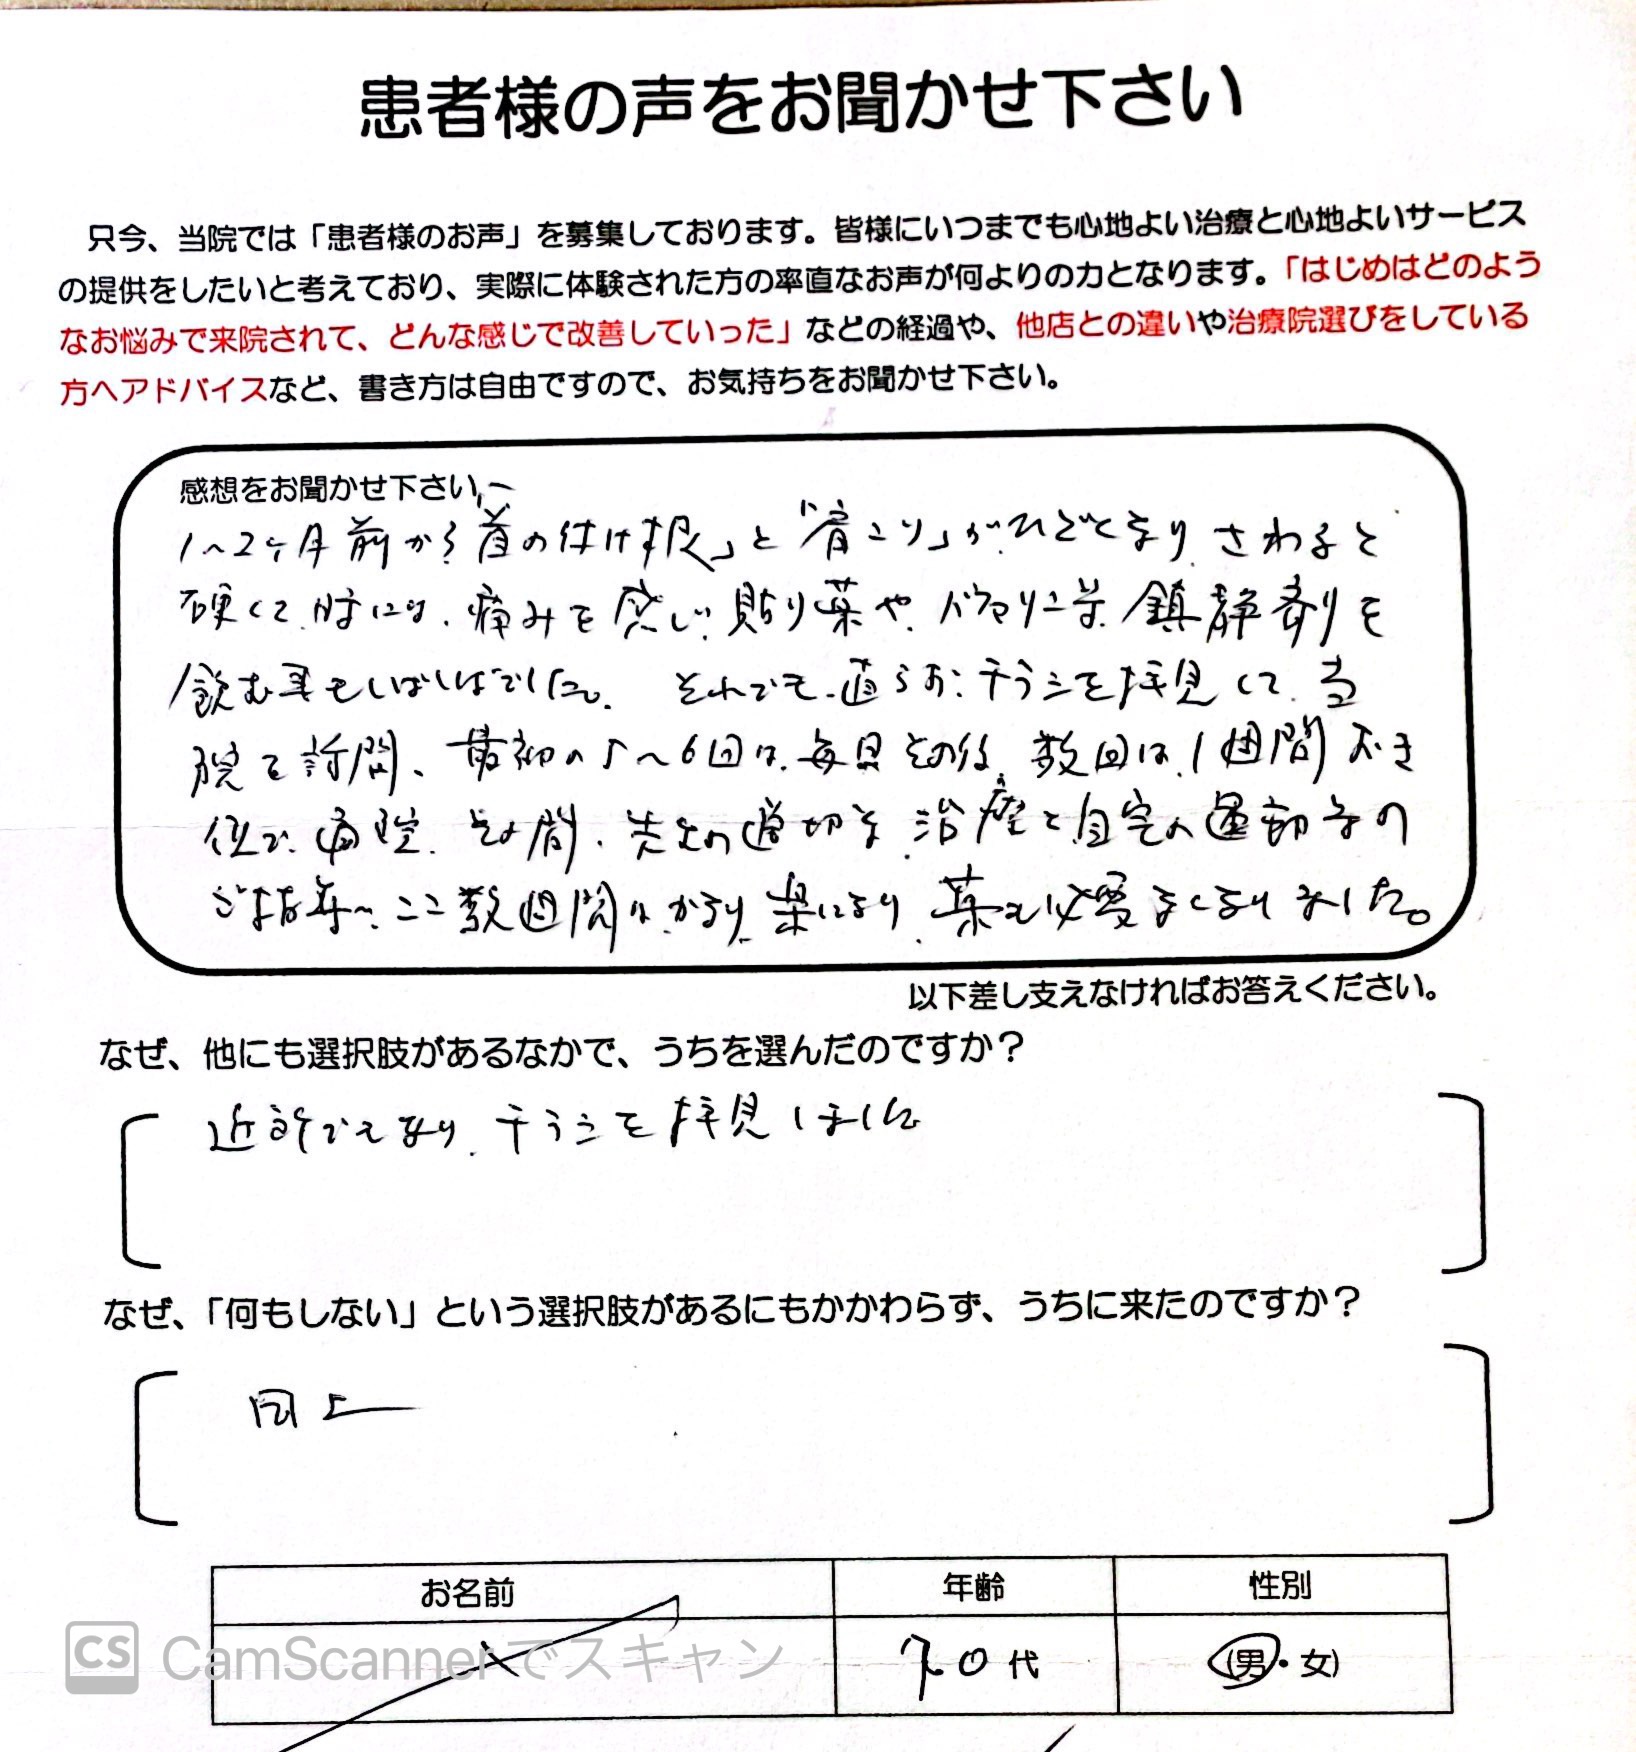 患者様の声をお聞かせ下さい
只今、当院では「患者様のお声」を募集しております。皆様にいつまでも心地よい治療と心地よいサービス
の提供をしたいと考えており、実際に体験された方の率直なお声が何よりの力となります。「はじめはどのよう
なお悩みで来院されて、どんな感じで改善していった」などの経過や、他店との違いや治療院選びをしている
方へアドバイスなど、書き方は自由ですので、お気持ちをお聞かせ下さい。
感想をお聞かせ下さい
1〜2ヶ月前から「首の付け根」と「肩こり」がひどくなり、さわると
硬くて、時には、痛みを感じ、貼り薬や、バファリン等、鎮静剤を
飲む事もしばしばでした。それでも、直らず、チラシを拝見して、当
院を訪問、最初の5〜6回は、毎日その後、数回は、1週間おき
位で、通院、その間、先生の適切な治療と自宅の運動等の
ご指導で、ここ数週間は、かなり、楽になり、薬も必要なくなりました。
以下差し支えなければお答えください。
なぜ、他にも選択肢があるなかで、うちを選んだのですか？
近所でもあり、チラシを拝見しました
なぜ、「何もしない」という選択肢があるにもかかわらず、うちに来たのですか？
同上
お名前 年齢 性別
70代 (男・女)
CS CamScannerでスキャン